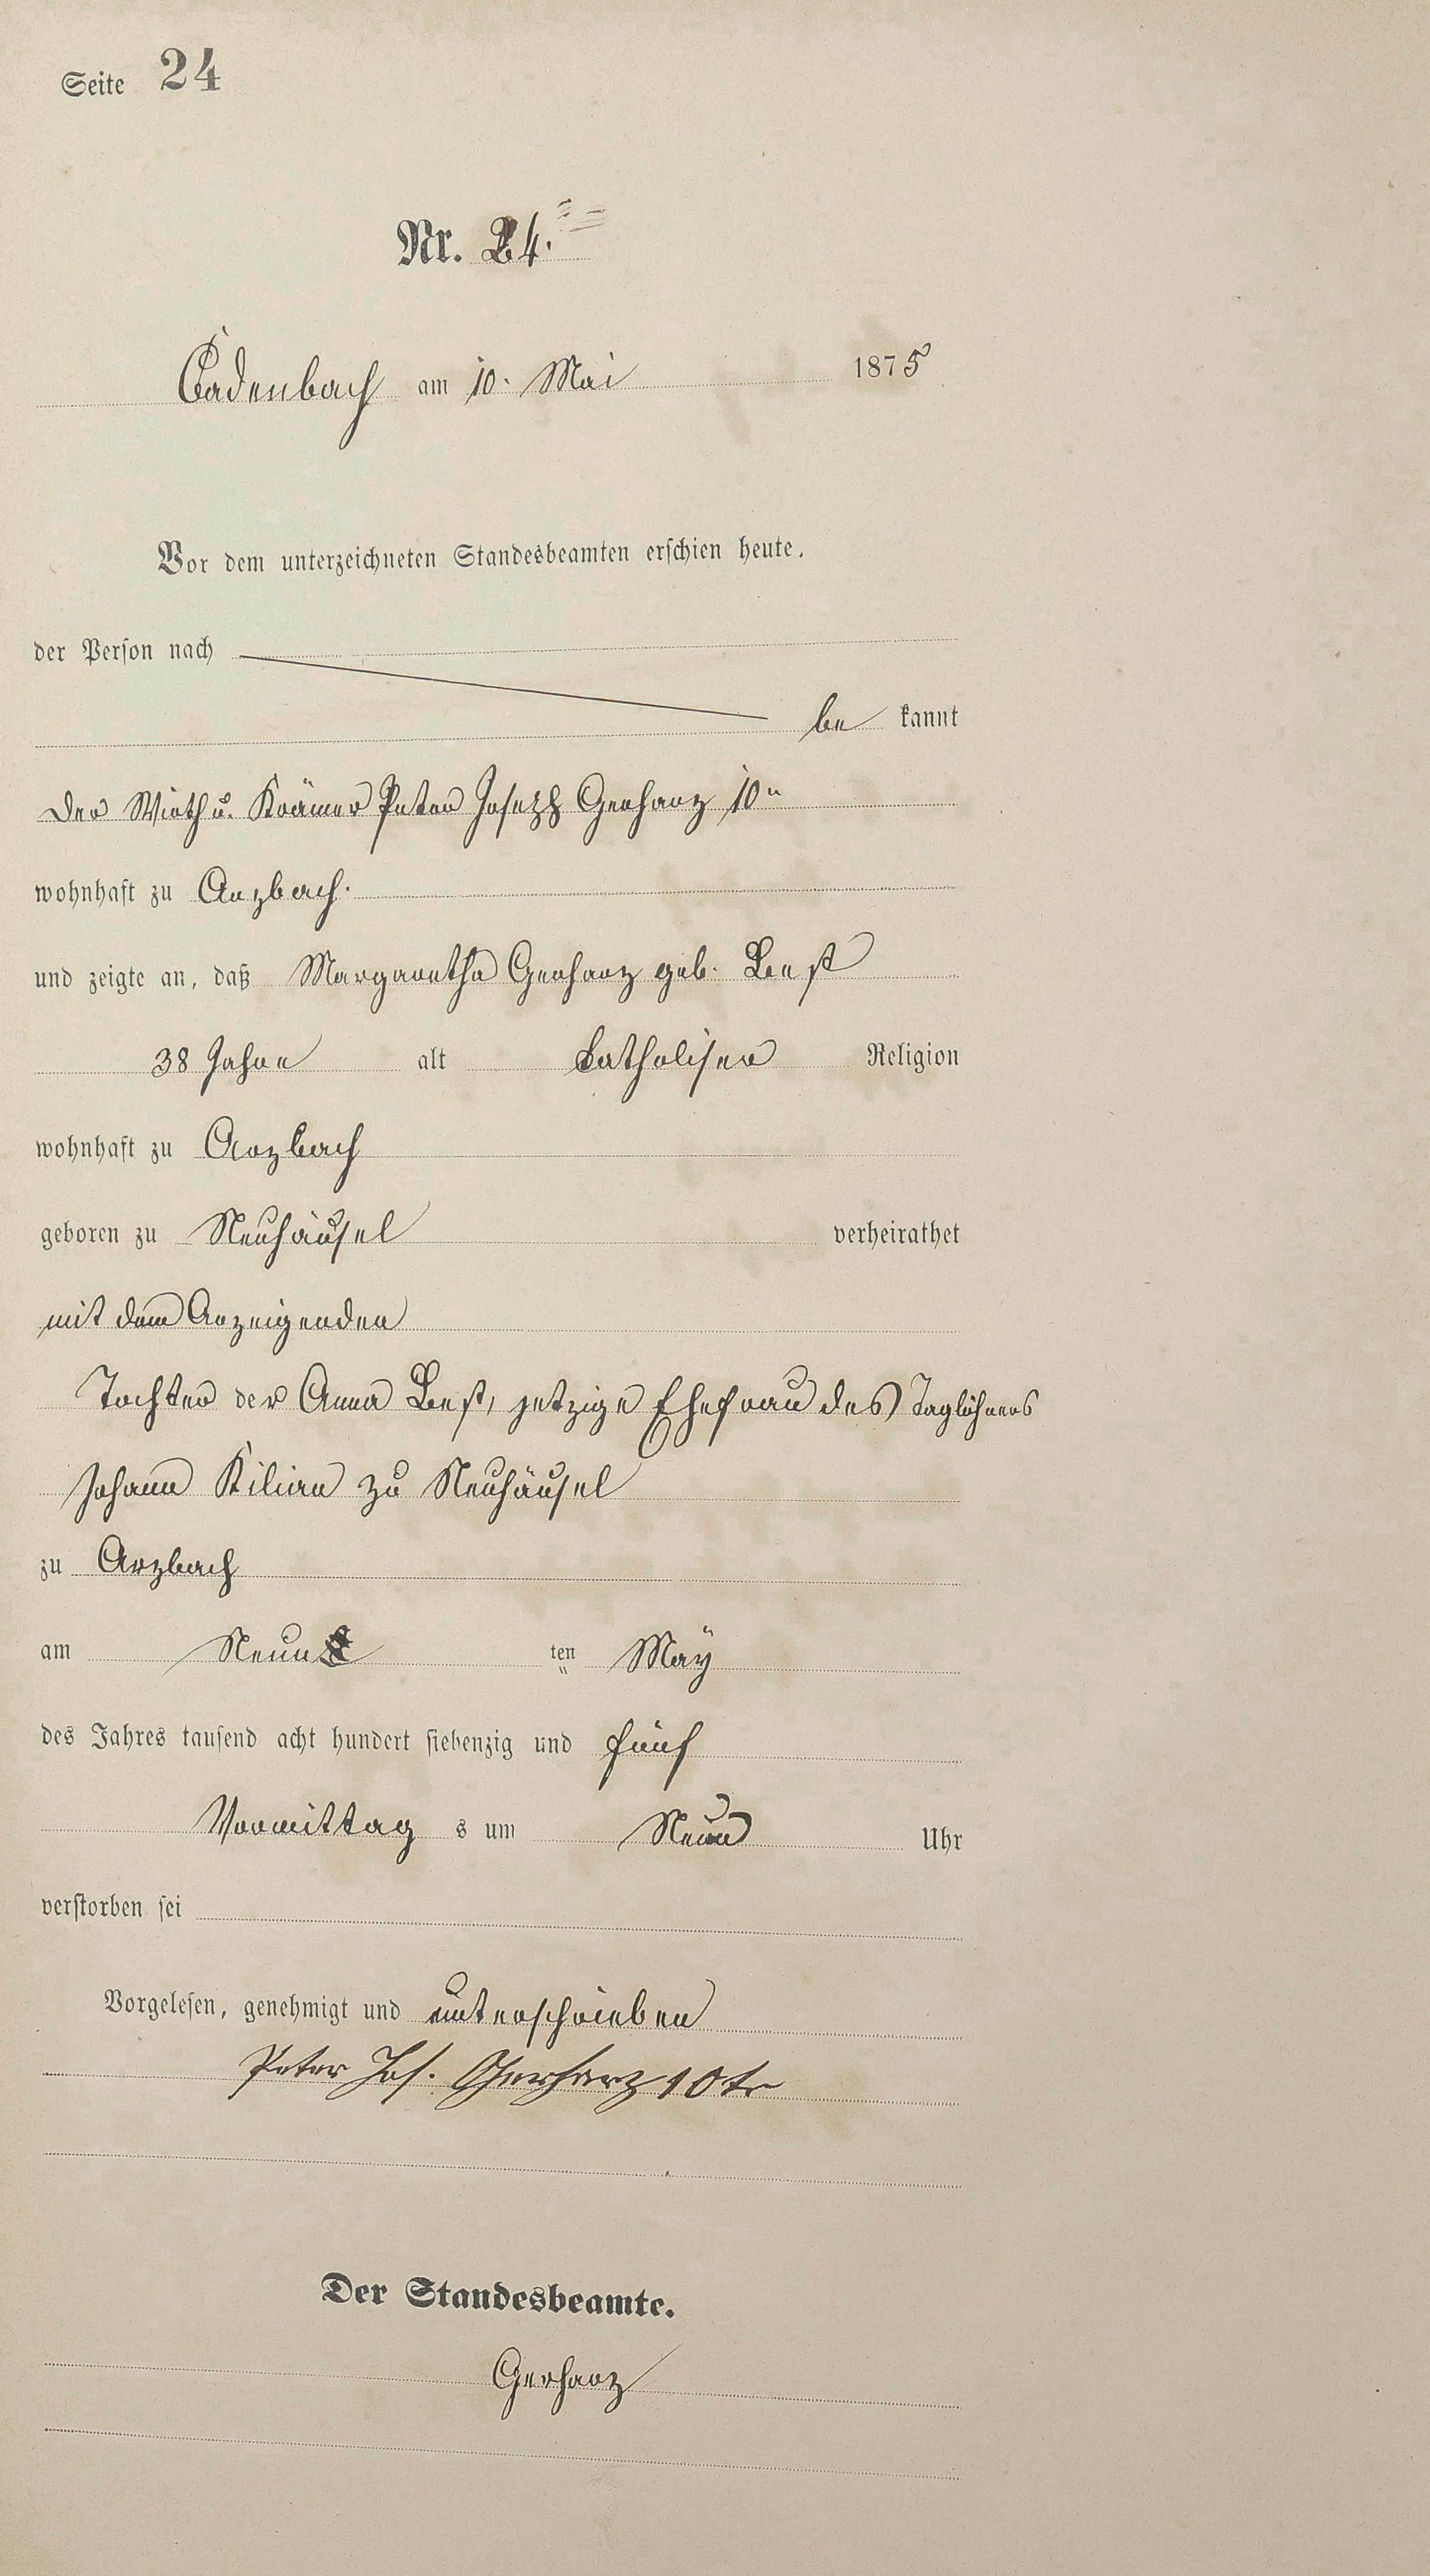 Seite 24
Nr. 24.
Cadenbach am 10. Mai 1875
Vor dem unterzeichneten Standesbeamten erschien heute,
der Person nach
be kannt
Der Wirth u. Krämer Peter Joseph Gerharz 10r
wohnhaft zu Arzbach.
und zeigte an, daß Margaretha Gerharz geb. Best
38 Jahre alt katholischer Religion
wohnhaft zu Arzbach
geboren zu Neuhäusel verheirathet
mit dem Anzeigenden
Tochter der Anna Best, jetzige Ehefrau des Taglöhners
Johann Kilian zu Neuhäusel
zu Arzbach
am Neun ten May
des Jahres tausend acht hundert siebenzig und fünf
Vormittag s um Neun Uhr
verstorben sei
Vorgelesen, genehmigt und unterschrieben
Peter Jos. Gerharz 10tr
Der Standesbeamte.
Gerharz